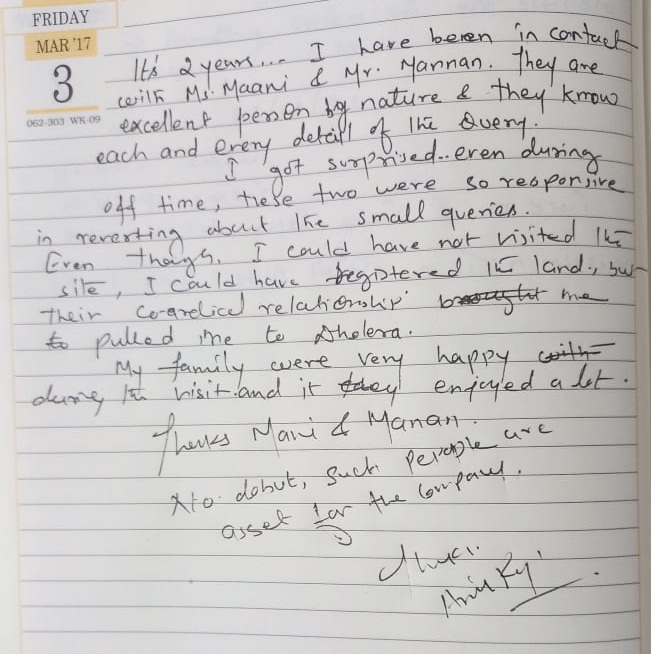 FRIDAY
MAR '17
3
062-303 WK-09
It's 2 years... I have beren in contact
with Ms. Maani & Mr. Mannan. They are
excellent person by nature & they know
each and every detail of the Query.
I got surprised.. even during
off time, these two were so responsive
in reverting about the small queries.
Even though, I could have not visited the
site, I could have registered the land, but
their co-ordical relationship brought me
to pulled me to Dholera.
My family were very happy with
during the visit and it they enjoyed a lot.
Thanks Mani & Manan.
No dobut, such people are
asset for the company.